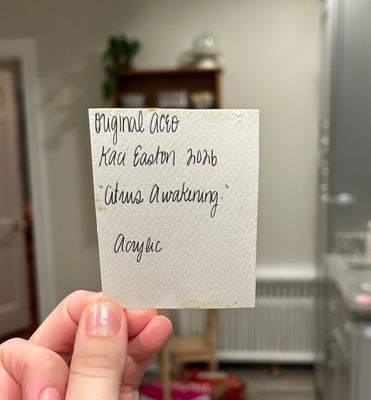 Original ACEO
Kaci Easton 2026
"Citrus Awakening."
Acrylic